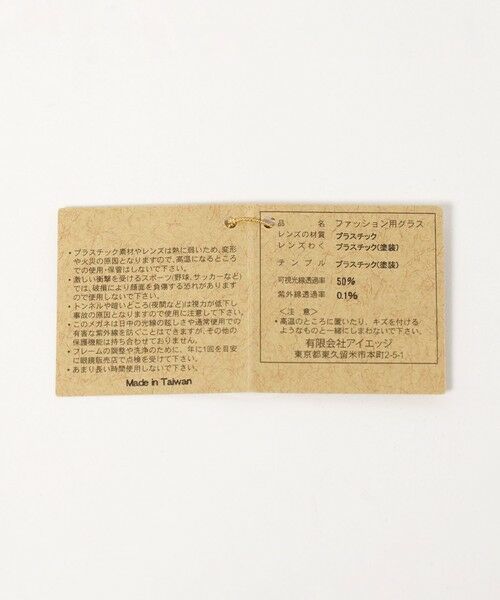 ・プラスチック素材やレンズは熱に弱いため、変形
や火災の原因となりますので、高温になるところ
での使用・保管はしないで下さい。
・激しい衝撃を受けるスポーツ(野球、サッカーなど)
では、破損により顔面を負傷する恐れがあります
ので使用しないで下さい。
・トンネルや暗いところ(夜間など)は視力が低下し
事故の原因となりますので使用に注意して下さい。
・このメガネは日中の光線の眩しさや通常使用での
有害な紫外線を防ぐことはできますが、その他の
保護機能は持ち合わせておりません。
・フレームの調整や洗浄のために、年に1回を目安
に眼鏡販売店で点検を受けて下さい。
・あまり長い時間使用しないで下さい。
Made in Taiwan
品 名 ファッション用グラス
レンズの材質 プラスチック
レンズわく プラスチック(塗装)
テンプル プラスチック(塗装)
可視光線透過率 50%
紫外線透過率 0.1%
<注 意>
・高温のところに置いたり、キズを付ける
ようなものと一緒にしまわないで下さい。
有限会社アイエッジ
東京都東久留米市本町2-5-1